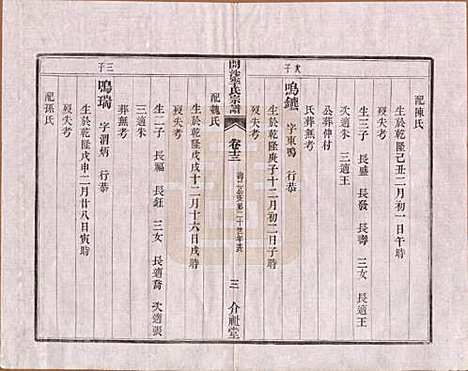 配陳氏
生於乾隆己丑二月初一日午時
歿失考
生三子 長盛 長發 長壽 三女 長適王
次適李 三適王
公葬伸村
氏葬無考
次子
鳴鑣 字東鳴 行恭
生於乾隆庚子十二月初二日子時
歿失考
開沙李氏宗譜
卷十三
三
介祉堂
配魏氏
生於乾隆戊戌十二月十六日戌時
歿失考
生二子 長福 長鈺 三女 長適喬 次適張
三適朱
葬無考
三子
鳴瑞 字渭炳 行恭
生於乾隆戊申二月廿八日寅時
歿失考
配孫氏